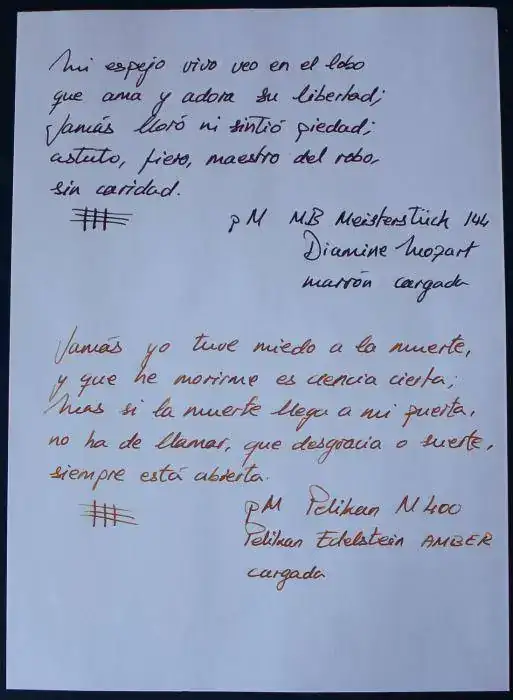 Mi espejo vivo veo en el lobo
que ama y adora su libertad;
Jamás lloró ni sintió piedad;
astuto, fiero, maestro del robo,
sin caridad.
pM MB Meisterstück 144
Diamine Mozart
marrón cargada
Jamás yo tuve miedo a la muerte,
y que he morirme es ciencia cierta;
Mas si la muerte llega a mi puerta,
no ha de llamar, que desgracia o suerte,
siempre está abierta.
pM Pelikan M400
Pelikan Edelstein AMBER
cargada